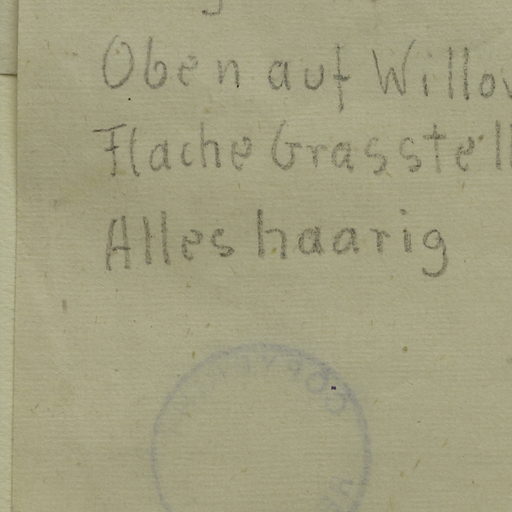 Oben auf Willow
Flache Grasstell
Alles haarig